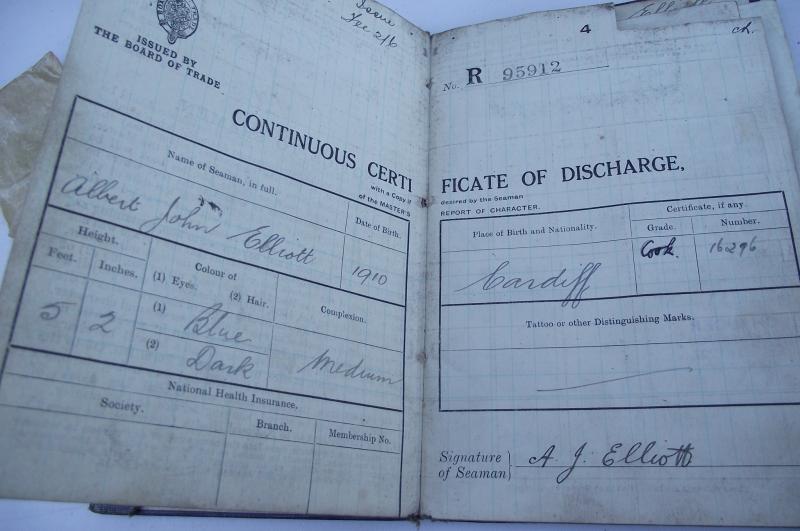 Issue
Fee 2/6
ISSUED BY
THE BOARD OF TRADE
CONTINUOUS CERTI
with a Copy if
of the MASTER'S
Name of Seaman, in full.
Date of Birth.
Albert John Elliott
1910
Height.
Feet.
Inches.
Colour of
(1) Eyes.
(2) Hair.
Complexion.
5
2
(1) Blue
(2) Dark
Medium
National Health Insurance.
Society.
Branch.
Membership No.
4
ch.
No. R 95912
FICATE OF DISCHARGE,
desired by the Seaman
REPORT OF CHARACTER.
Place of Birth and Nationality.
Certificate, if any
Grade.
Number.
Cardiff
Cook.
16296
Tattoo or other Distinguishing Marks.
Signature
of Seaman
A. J. Elliott